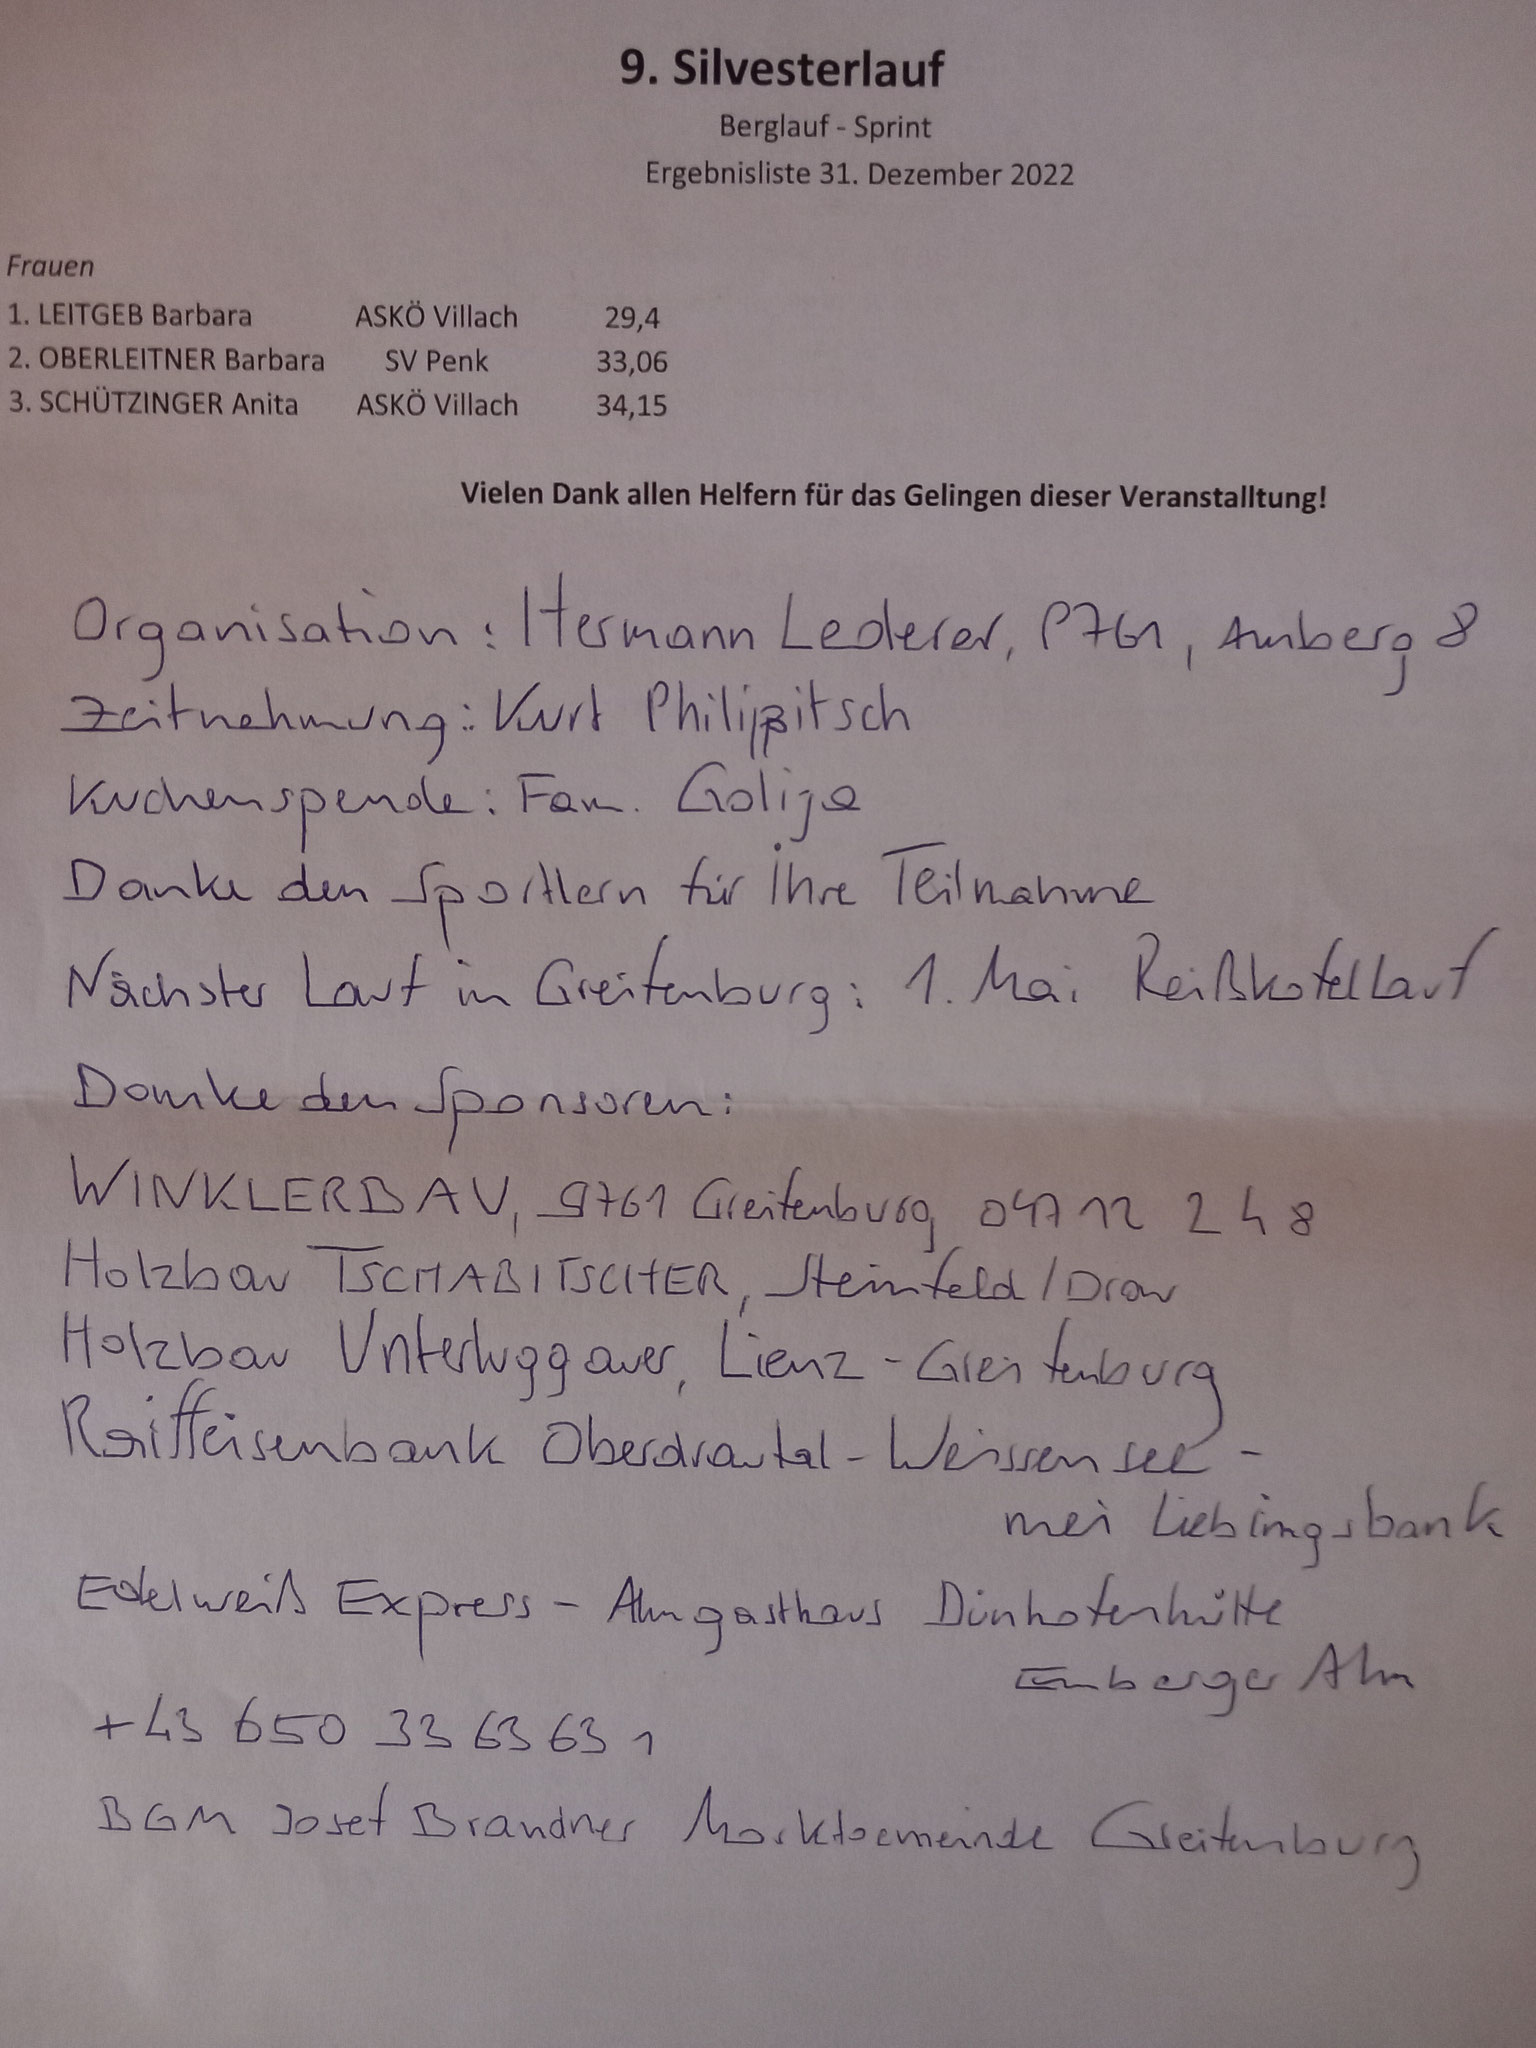 9. Silvesterlauf
Berglauf - Sprint
Ergebnisliste 31. Dezember 2022
Frauen
1. LEITGEB Barbara ASKÖ Villach 29,4
2. OBERLEITNER Barbara SV Penk 33,06
3. SCHÜTZINGER Anita ASKÖ Villach 34,15
Vielen Dank allen Helfern für das Gelingen dieser Veranstalltung!
Organisation: Hermann Lederer, 9761, Amberg 8
Zeitnehmung: Kurt Philippitsch
Kuchenspende: Fam. Golija
Danke den Sportlern für Ihre Teilnahme
Nächster Lauf in Greifenburg: 1. Mai Reißkofellauf
Danke den Sponsoren:
WINKLERBAU, 9761 Greifenburg 04712 248
Holzbau TSCHABITSCHER, Steinfeld/Drau
Holzbau Unterluggauer, Lienz-Greifenburg
Raiffeisenbank Oberdrautal-Weissensee -
mei Lieblingsbank
Edelweiß Express - Almgasthaus Dünhofenhütte
Emberger Alm
+43 650 33 63 63 1
BGM Josef Brandner Marktgemeinde Greifenburg